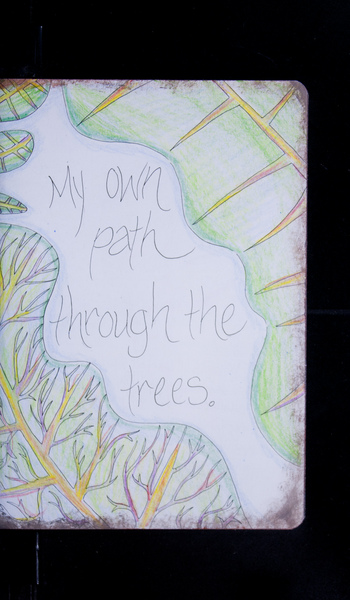 My own
path
through the
trees.